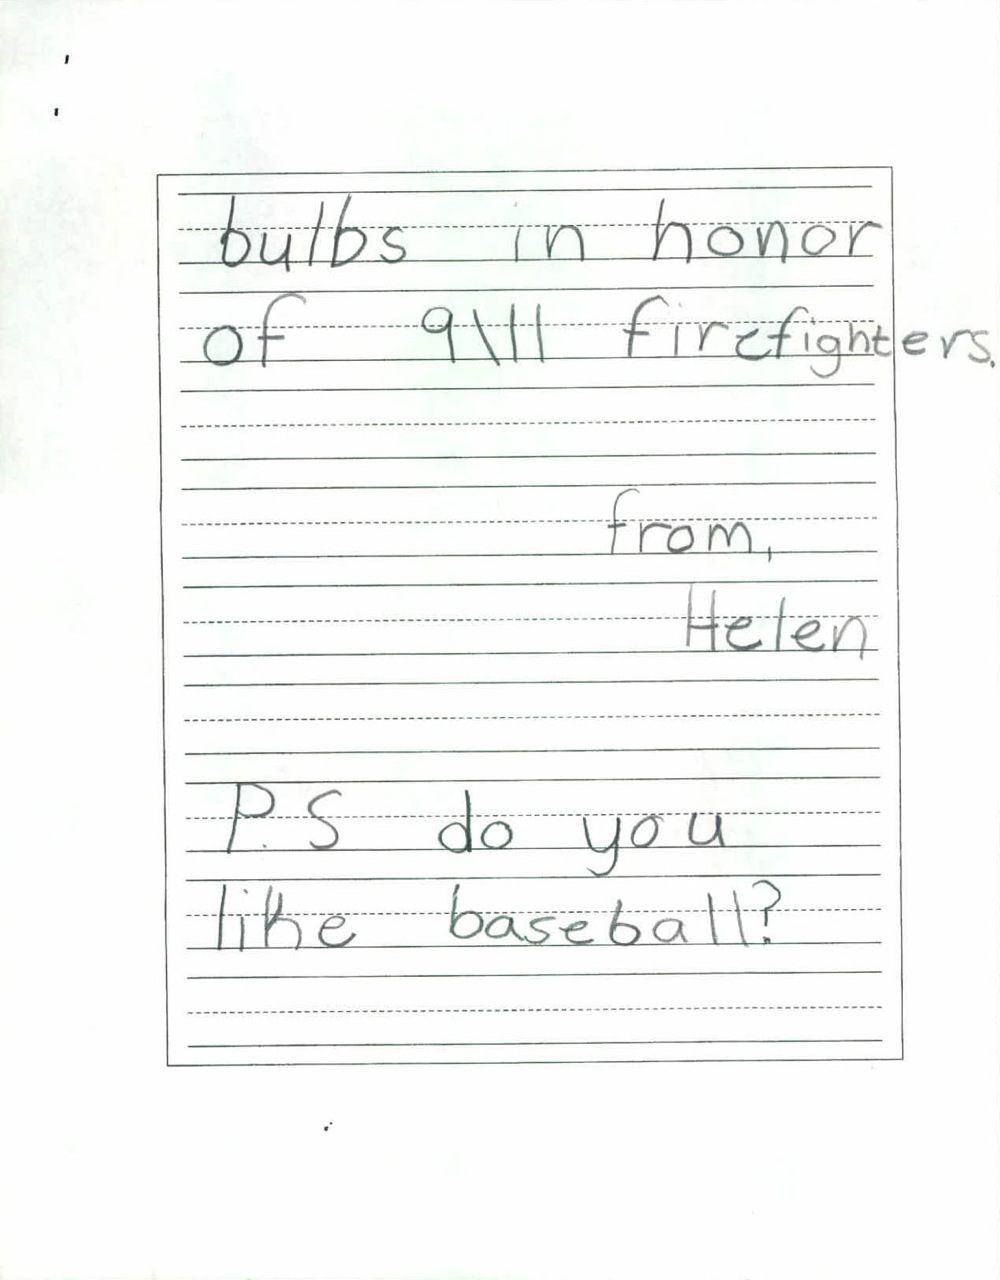 bulbs in honor
of 9\11 firefighters.
from,
Helen
P.S do you
like baseball?